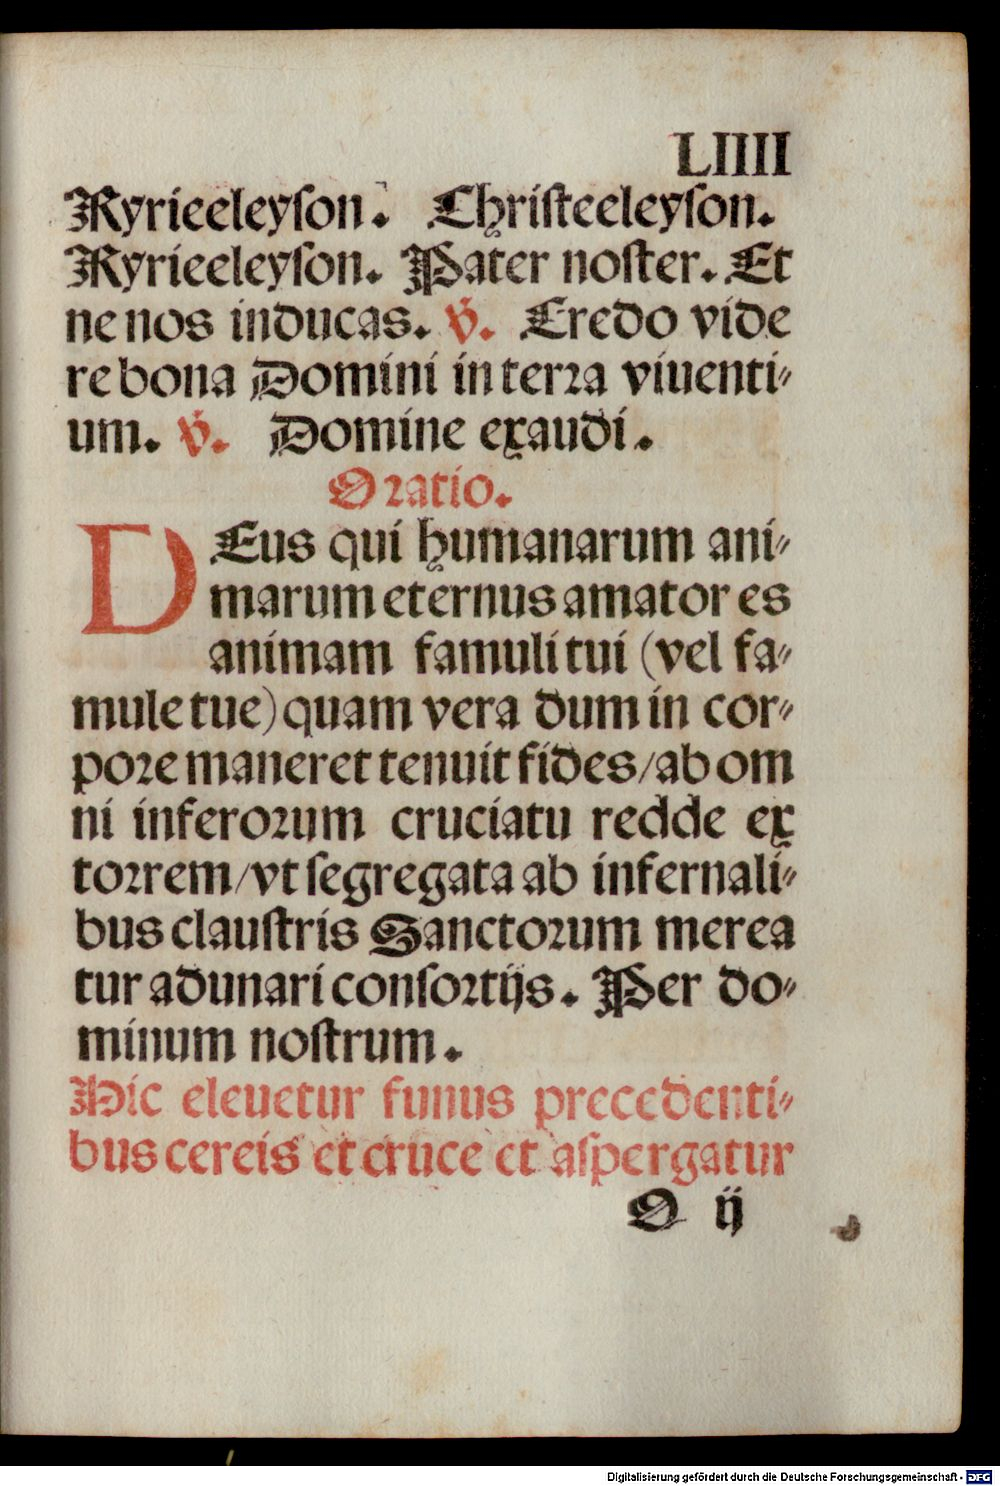 LIIII
Kyrieeleyson. Christeeleyson.
Kyrieeleyson. Pater noster. Et
ne nos inducas. V̇. Credo vide
re bona Domini in terra viuenti⸗
um. V̇. Domine exaudi.
Oratio.
DEus qui humanarum ani⸗
marum eternus amator es
animam famuli tui (vel fa⸗
mule tue) quam vera dum in cor⸗
pore maneret tenuit fides/ab om
ni inferorum cruciatu redde ex
torrem/vt segregata ab infernali⸗
bus claustris Sanctorum merea
tur adunari consortijs. Per do⸗
minum nostrum.
Hic eleuetur funus precedenti⸗
bus cereis et cruce et aspergatur
O ij
Digitalisierung gefördert durch die Deutsche Forschungsgemeinschaft - DFG